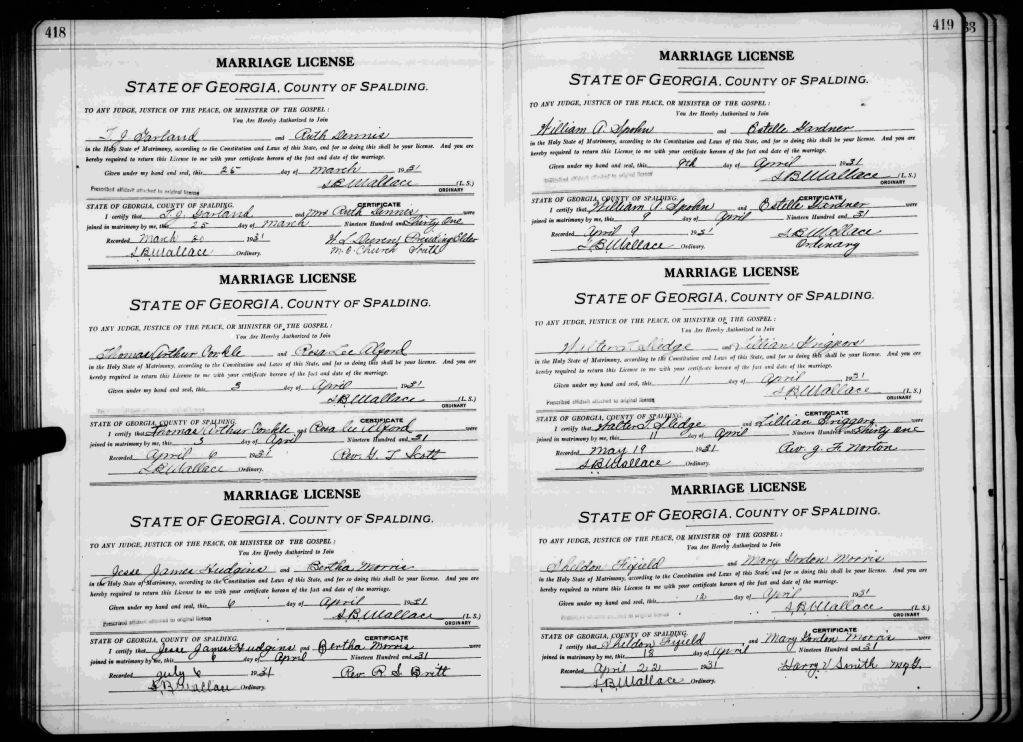 418
MARRIAGE LICENSE
STATE OF GEORGIA, COUNTY OF SPALDING.
TO ANY JUDGE, JUSTICE OF THE PEACE, OR MINISTER OF THE GOSPEL:
You Are Hereby Authorized to Join
T. J. Garland and Ruth Dennis
in the Holy State of Matrimony, according to the Constitution and Laws of this State, and for so doing this shall be your License. And you are
hereby required to return this License to me with your certificate hereon of the fact and date of the marriage.
Given under my hand and seal, this 25 day of March 1931
Prescribed affidavit attached to original license
S.B. Wallace (L. S.)
ORDINARY
STATE OF GEORGIA, COUNTY OF SPALDING. CERTIFICATE
I certify that T. J. Garland and Mrs Ruth Dennis were
joined in matrimony by me, this 25 day of March Nineteen Hundred and Thirty One
Recorded March 30 1931 Presiding Elder
S.B. Wallace Ordinary. M. E. Church South
MARRIAGE LICENSE
STATE OF GEORGIA, COUNTY OF SPALDING.
TO ANY JUDGE, JUSTICE OF THE PEACE, OR MINISTER OF THE GOSPEL:
You Are Hereby Authorized to Join
Thomas Arthur Conkle and Rosa Lee Alford
in the Holy State of Matrimony, according to the Constitution and Laws of this State, and for so doing this shall be your License. And you are
hereby required to return this License to me with your certificate hereon of the fact and date of the marriage.
Given under my hand and seal, this 3 day of April 1931
S.B. Wallace (L. S.)
ORDINARY
STATE OF GEORGIA, COUNTY OF SPALDING. CERTIFICATE
I certify that Thomas Arthur Conkle and Rosa Lee Alford were
joined in matrimony by me, this 3 day of April Nineteen Hundred and 31
Recorded April 6 1931 Rev. G. T. Scott
S.B. Wallace Ordinary.
MARRIAGE LICENSE
STATE OF GEORGIA, COUNTY OF SPALDING.
TO ANY JUDGE, JUSTICE OF THE PEACE, OR MINISTER OF THE GOSPEL:
You Are Hereby Authorized to Join
Jesse James Hudgins and Bertha Morris
in the Holy State of Matrimony, according to the Constitution and Laws of this State, and for so doing this shall be your License. And you are
hereby required to return this License to me with your certificate hereon of the fact and date of the marriage.
Given under my hand and seal, this 6 day of April 1931
Prescribed affidavit attached to original license
S.B. Wallace (L. S.)
ORDINARY
STATE OF GEORGIA, COUNTY OF SPALDING. CERTIFICATE
I certify that Jesse James Hudgins and Bertha Morris were
joined in matrimony by me, this 6 day of April Nineteen Hundred and 31
Recorded July 6 1931 Rev. R. S. Britt
S.B. Wallace Ordinary.
419
33
MARRIAGE LICENSE
STATE OF GEORGIA, COUNTY OF SPALDING.
TO ANY JUDGE, JUSTICE OF THE PEACE, OR MINISTER OF THE GOSPEL:
You Are Hereby Authorized to Join
William A. Spohn and Estelle Gardner
in the Holy State of Matrimony, according to the Constitution and Laws of this State, and for so doing this shall be your License. And you are
hereby required to return this License to me with your certificate hereon of the fact and date of the marriage.
Given under my hand and seal, this 9th day of April 1931
Prescribed affidavit attached to original license
S.B. Wallace (L. S.)
ORDINARY
STATE OF GEORGIA, COUNTY OF SPALDING. CERTIFICATE
I certify that William A. Spohn and Estelle Gardner were
joined in matrimony by me, this 9 day of April Nineteen Hundred and 31
Recorded April 9 1931 S.B. Wallace
S.B. Wallace Ordinary. Ordinary
MARRIAGE LICENSE
STATE OF GEORGIA, COUNTY OF SPALDING.
TO ANY JUDGE, JUSTICE OF THE PEACE, OR MINISTER OF THE GOSPEL:
You Are Hereby Authorized to Join
Walter T. Sledge and Lillian Griggers
in the Holy State of Matrimony, according to the Constitution and Laws of this State, and for so doing this shall be your License. And you are
hereby required to return this License to me with your certificate hereon of the fact and date of the marriage.
Given under my hand and seal, this 11 day of April 1931
Prescribed affidavit attached to original license
S.B. Wallace (L. S.)
ORDINARY
STATE OF GEORGIA, COUNTY OF SPALDING. CERTIFICATE
I certify that Walter T. Sledge and Lillian Griggers were
joined in matrimony by me, this 11 day of April Nineteen Hundred and Thirty One
Recorded May 19 1931 Rev. J. F. Norton
S.B. Wallace Ordinary.
MARRIAGE LICENSE
STATE OF GEORGIA, COUNTY OF SPALDING.
TO ANY JUDGE, JUSTICE OF THE PEACE, OR MINISTER OF THE GOSPEL:
You Are Hereby Authorized to Join
Sheldon Fifield and Mary Gordon Morris
in the Holy State of Matrimony, according to the Constitution and Laws of this State, and for so doing this shall be your License. And you are
hereby required to return this License to me with your certificate hereon of the fact and date of the marriage.
Given under my hand and seal, this 12 day of April 1931
Prescribed affidavit attached to original license
S.B. Wallace (L. S.)
ORDINARY
STATE OF GEORGIA, COUNTY OF SPALDING. CERTIFICATE
I certify that Sheldon Fifield and Mary Gordon Morris were
joined in matrimony by me, this 18 day of April Nineteen Hundred and 31
Recorded April 22 1931 Harry V. Smith M.G.
S.B. Wallace Ordinary.